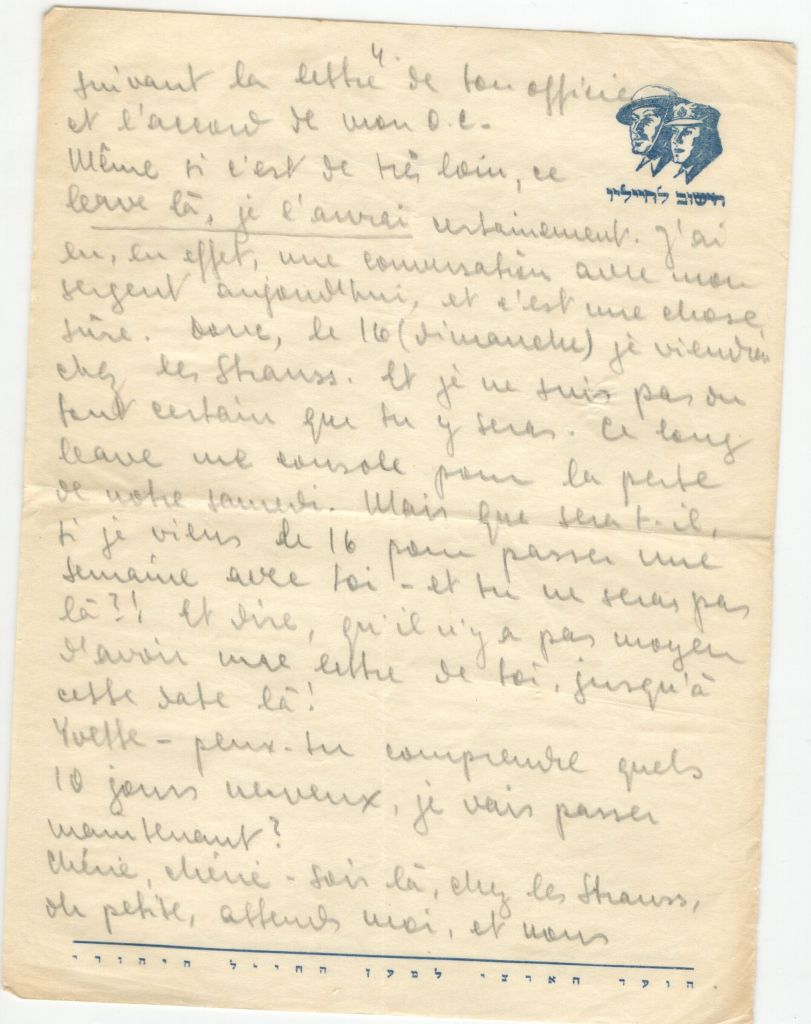 4.
suivant la lettre de ton officier
et l'accord de mon O.C.
חישוב לחייליו
Même si c'est de très loin, ce
leave là, je l'aurai certainement. J'ai
eu, en effet, une conversation avec mon
sergent aujourd'hui, et c'est une chose
sûre. Donc, le 16 (dimanche) je viendrai
chez les Strauss. Et je ne suis pas du
tout certain que tu y seras. Ce long
leave me console pour la perte
de notre samedi. Mais que sera t-il,
si je viens le 16 pour passer une
semaine avec toi - et tu ne seras pas
là?! Et dire, qu'il n'y a pas moyen
d'avoir une lettre de toi, jusqu'à
cette date là!
Yvette - peux-tu comprendre quels
10 jours nerveux, je vais passer
maintenant?
Chérie, chérie - sois là, chez les Strauss,
oh petite, attends moi, et nous
הועד הארצי למען החייל היהודי